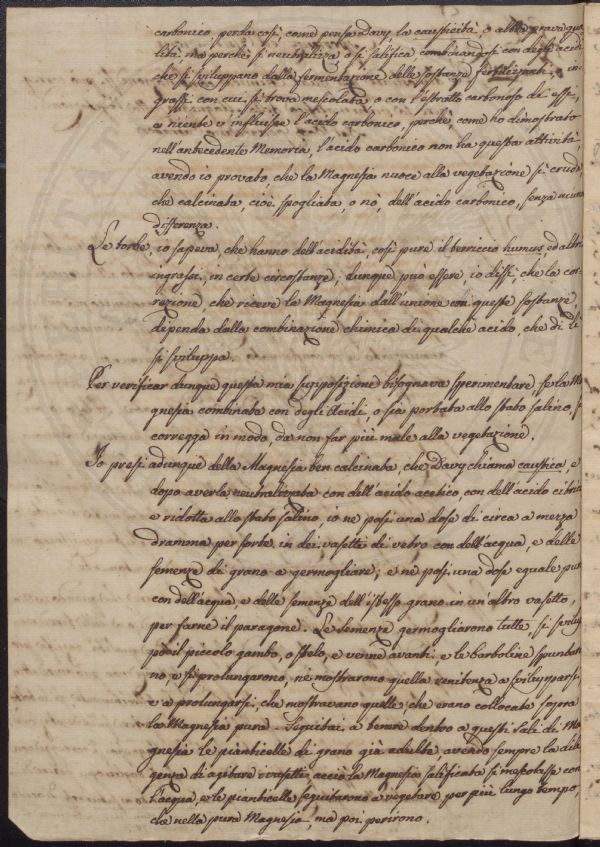 carbonico, perda così, come pensa Davy la causticità, o altra prava qua-
lità, ma perchè si neutralizza o si salifica combinandosi con degli acidi
che si sviluppano dalla fermentazione delle sostanze fertilizzanti, in-
grassi con cui si trova mescolata, o con l'estratto carbonoso di essi,
e niente v'influisce l'acido carbonico, perchè, come ho dimostrato
nell'antecedente Memoria, l'acido carbonico non ha questa attività,
avendo io provato, che la Magnesia nuoce alla vegetazione sì cruda,
che calcinata, cioè spogliata, o nò, dell'acido carbonico, senza niuna
differenza.
Le torbe, io sapeva, che hanno dell'acidità, così pure il terriccio humus, ed altri
ingrassi, in certe circostanze; dunque può essere, io dissi, che la cor-
rezione che riceve la Magnesia dall'unione con queste sostanze,
dipenda dalla combinazione chimica di qualche acido, che di lì
si sviluppa.
Per verificar dunque questa mia supposizione bisognava sperimentare, se la Ma-
gnesia combinata con degli Acidi, o sia portata allo stato salino, si
corregga in modo, da non far più male alla vegetazione.
Io presi adunque della Magnesia ben calcinata, che Davy chiama caustica, e
dopo averla neutralizzata con dell'acido acetico, con dell'acido citrico
e ridotta allo stato salino, io ne posi una dose di circa a mezza
dramma per sorte in dei vasetti di vetro con dell'acqua, e delle
semenze di grano a germogliare; e ne posi una dose eguale pur
con dell'acqua, e delle semenze dell'istesso grano in un'altro vasetto,
per farne il paragone. Le semenze germogliarono tutte, si svilup-
pò il piccolo gambo, o stelo, e venne avanti, e le barboline spuntaro-
no, e si prolungarono, nè mostrarono quella renitenza a svilupparsi
e a prolungarsi, che mostravano quelle, che erano collocate sopra
la Magnesia pura. Seguitai a tenere dentro a questi sali di Ma-
gnesia le pianticelle di grano già adulte avendo sempre la dili-
genza di agitare i vasetti, acciò la Magnesia salificata si mescolasse con
l'acqua, e le pianticelle seguitarono a vegetare per più lungo tempo,
che nella pura Magnesia, ma poi perirono.